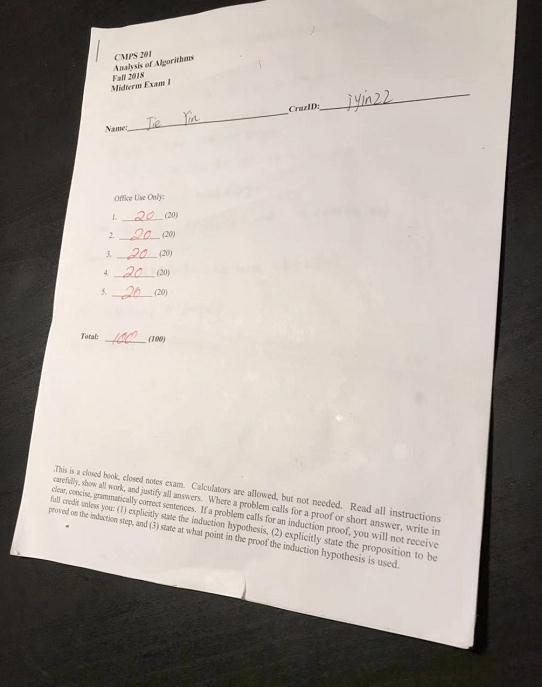 CMPS 201
Analysis of Algorithms
Fall 2018
Midterm Exam 1
Name: Jie Yin CruzID: jyin22
Office Use Only:
1. 20 (20)
2. 20 (20)
3. 20 (20)
4. 20 (20)
5. 20 (20)
Total: 100 (100)
.This is a closed book, closed notes exam. Calculators are allowed, but not needed. Read all instructions
carefully, show all work, and justify all answers. Where a problem calls for a proof or short answer, write in
clear, concise, grammatically correct sentences. If a problem calls for an induction proof, you will not receive
full credit unless you: (1) explicitly state the induction hypothesis, (2) explicitly state the proposition to be
proved on the induction step, and (3) state at what point in the proof the induction hypothesis is used.